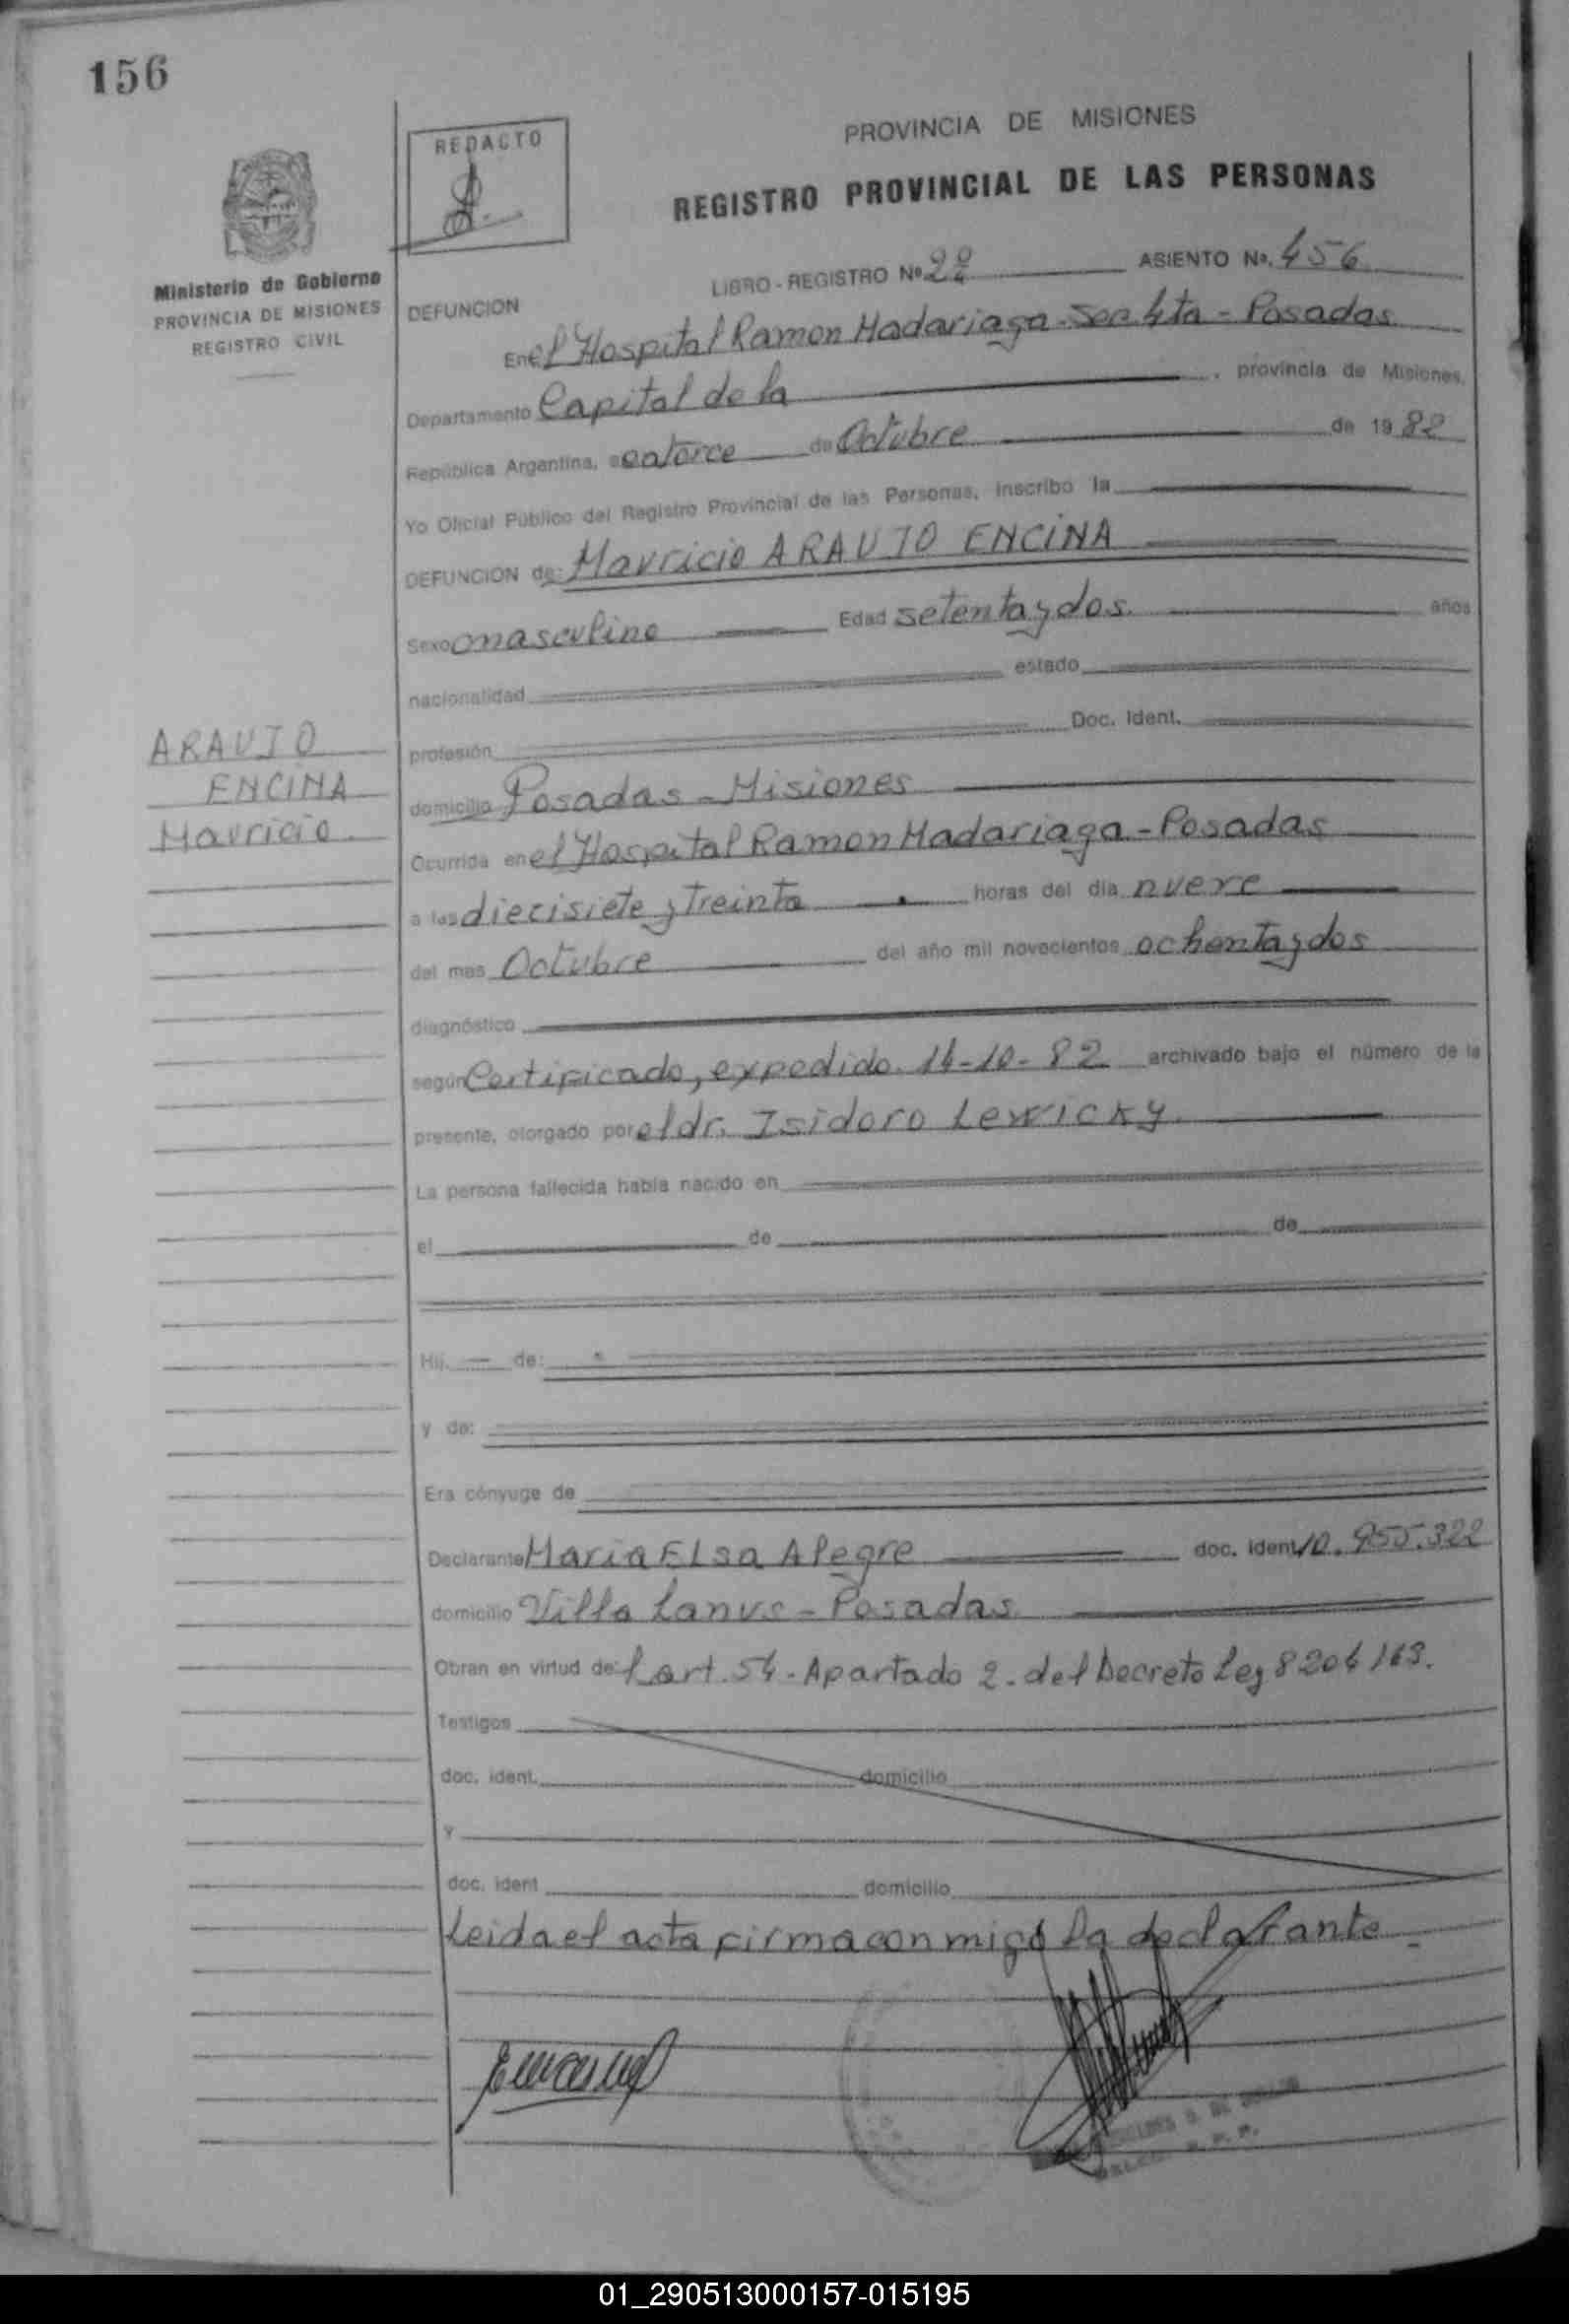 156
REDACTO
PROVINCIA DE MISIONES
REGISTRO PROVINCIAL DE LAS PERSONAS
Ministerio de Gobierno
PROVINCIA DE MISIONES
REGISTRO CIVIL
LIBRO - REGISTRO Nº 22 ASIENTO Nº. 456
DEFUNCION
En el Hospital Ramon Madariaga - Sec 4ta - Posadas
Departamento Capital de la , provincia de Misiones,
República Argentina, a catorce de Octubre de 19 82
Yo Oficial Público del Registro Provincial de las Personas, inscribo la
DEFUNCION de: Mauricio ARAUJO ENCINA
Sexo masculino Edad setenta y dos. años
nacionalidad estado
profesión Doc. Ident.
ARAUJO
ENCINA
Mauricio.
domicilio Posadas - Misiones
Ocurrida en el Hospital Ramon Madariaga - Posadas
a las diecisiete y treinta horas del día nueve
del mes Octubre del año mil novecientos ochenta y dos
diagnóstico
según Certificado, expedido. 14-10-82 archivado bajo el número de la
presente, otorgado por el dr. Isidoro Lewicky.
La persona fallecida había nacido en
el de de
Hij. de:
y de:
Era cónyuge de
Declarante Maria Elsa Alegre doc. ident. 10.955.322
domicilio Villa Lanus - Posadas.
Obran en virtud de: l art. 54 - Apartado 2. del Decreto Ley 8204/63.
Testigos
doc. ident. domicilio
Y
doc. ident domicilio
Leida el acta firma conmigo la declarante -
01_290513000157-015195